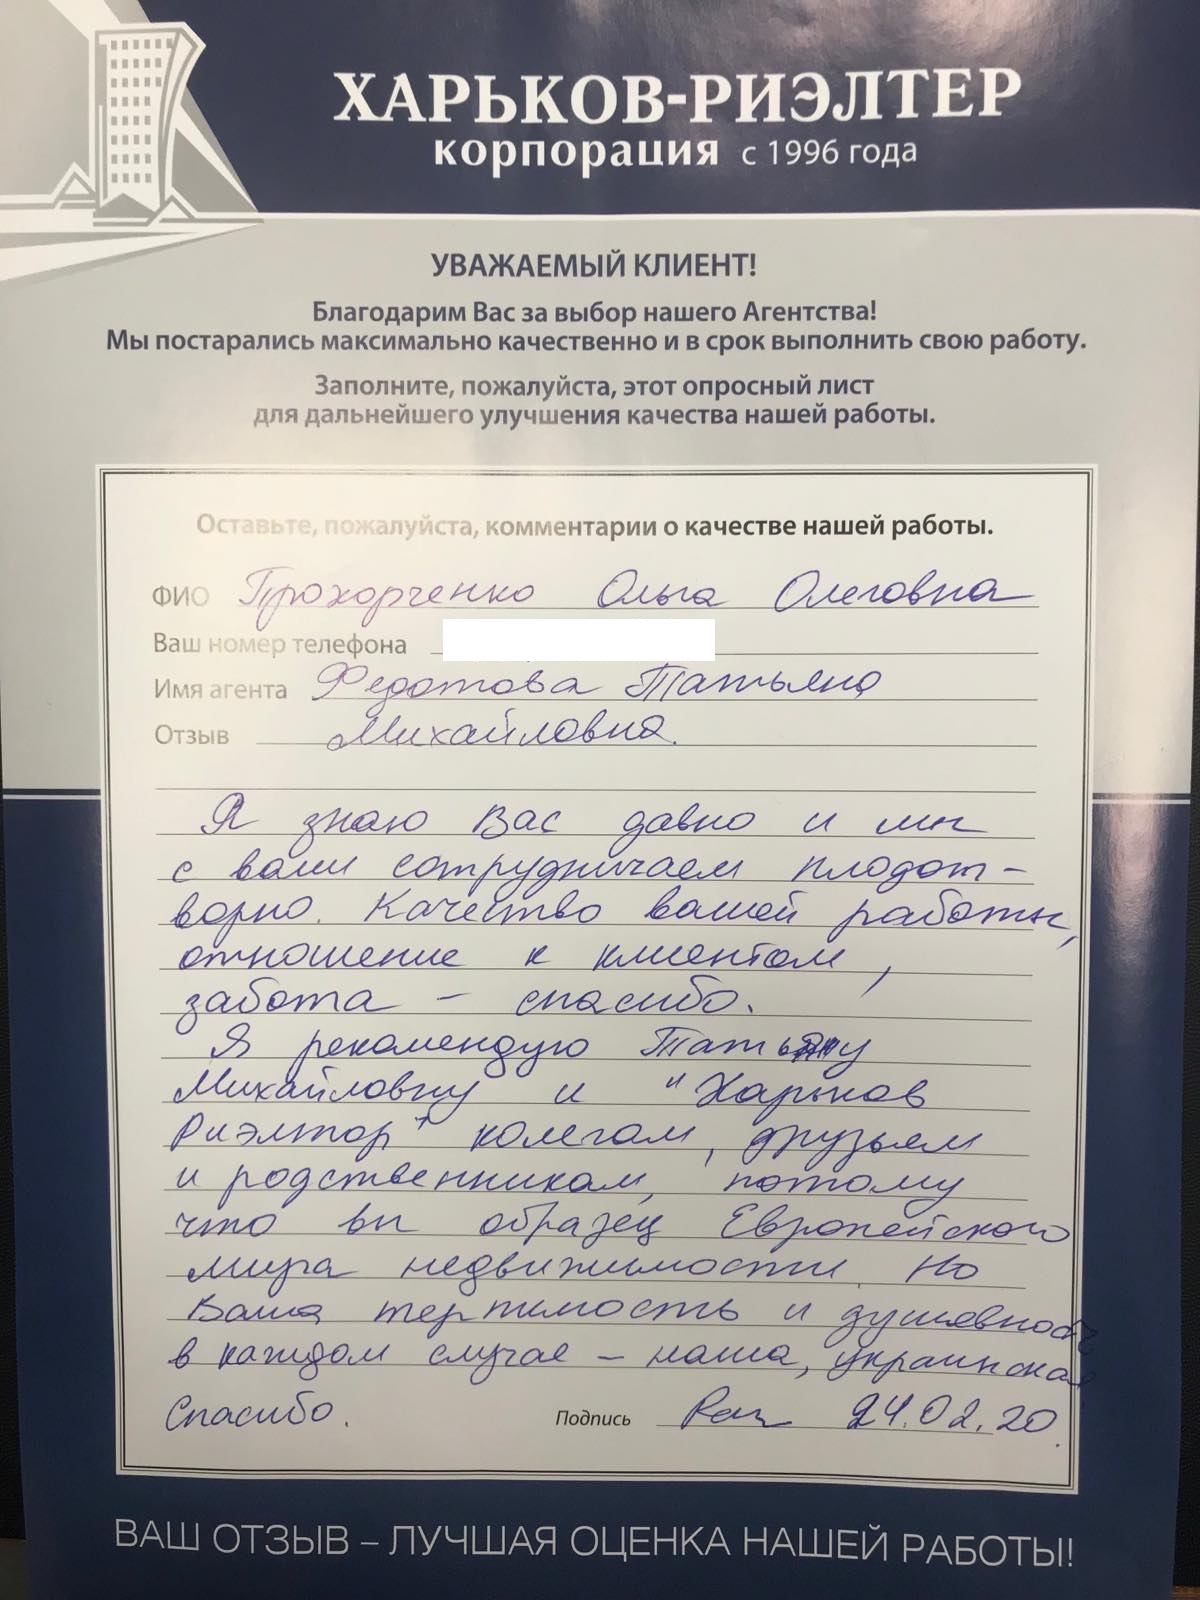 ХАРЬКОВ-РИЭЛТЕР
корпорация с 1996 года
УВАЖАЕМЫЙ КЛИЕНТ!
Благодарим Вас за выбор нашего Агентства!
Мы постарались максимально качественно и в срок выполнить свою работу.
Заполните, пожалуйста, этот опросный лист
для дальнейшего улучшения качества нашей работы.
Оставьте, пожалуйста, комментарии о качестве нашей работы.
ФИО Прохорченко Ольга Олеговна
Ваш номер телефона
Имя агента Федотова Татьяна
Отзыв Михайловна.
Я знаю Вас давно и мы
с вами сотрудничаем плодот-
ворно. Качество вашей работы,
отношение к клиентам,
забота – спасибо.
Я рекомендую Татьяну
Михайловну и "Харьков
Риэлтор" колегам, друзьям
и родственникам, потому
что вы образец Европейского
мира недвижимости. Но
Ваша терпимость и душевность
в каждом случае – наша, украинская
Спасибо. Подпись 24.02.20.
ВАШ ОТЗЫВ – ЛУЧШАЯ ОЦЕНКА НАШЕЙ РАБОТЫ!